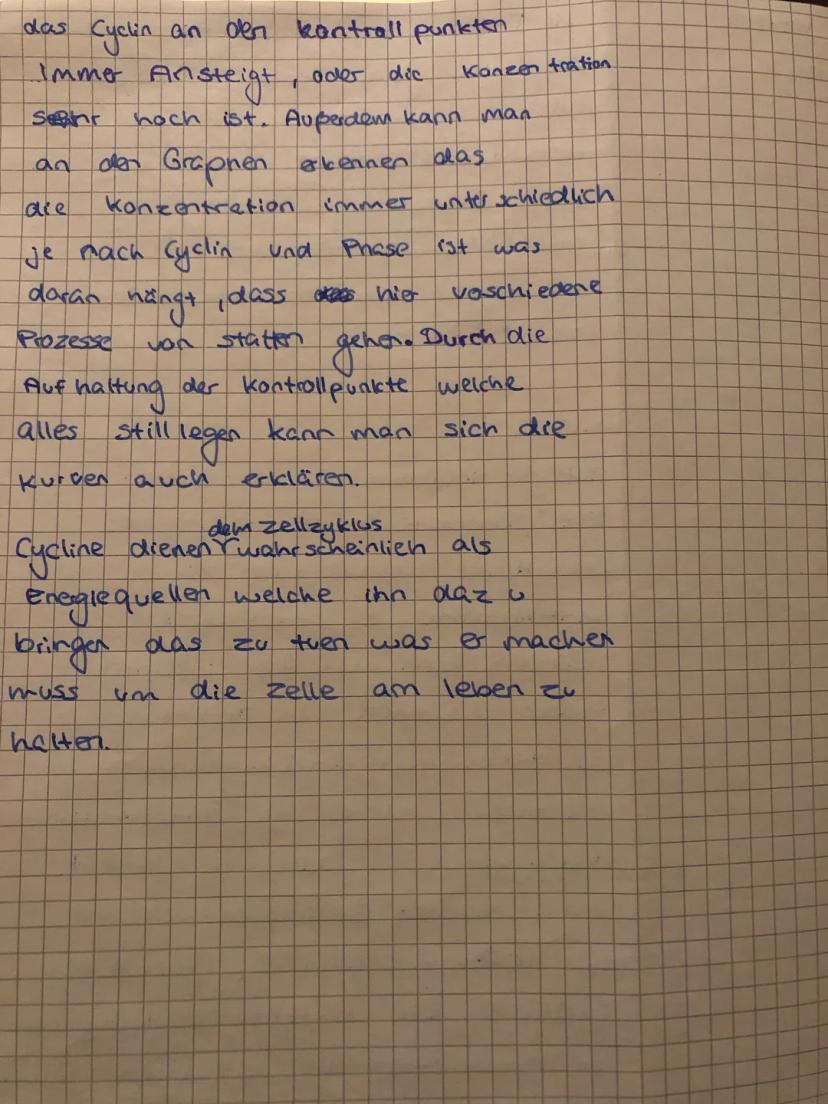 das Cyclin an den kontrollpunkten
Immer Ansteigt, oder die Konzentration
sehr hoch ist. Außerdem kann man
an den Graphen erkennen das
die Konzentration immer unterschiedlich
je nach Cyclin und Phase ist was
daran hängt, dass hier verschiedene
Prozesse von statten gehen. Durch die
Aufhaltung der Kontrollpunkte welche
alles still legen kann man sich die
Kurven auch erklären.
dem zellzyklus
Cycline dienen wahrscheinlich als
Energiequellen welche ihn dazu
bringen das zu tuen was er machen
muss um die zelle am leben zu
halten.